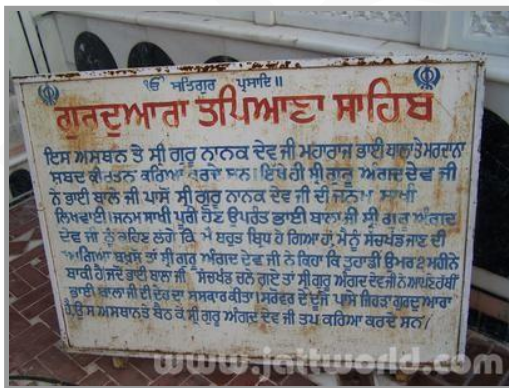 ੴ ਸਤਿਗੁਰ ਪ੍ਰਸਾਦਿ॥
ਗੁਰਦੁਆਰਾ ਤਪਿਆਣਾ ਸਾਹਿਬ
ਇਸ ਅਸਥਾਨ ਤੇ ਸ੍ਰੀ ਗੁਰੂ ਨਾਨਕ ਦੇਵ ਜੀ ਮਹਾਰਾਜ ਭਾਈ ਬਾਲਾ ਤੇ ਮਰਦਾਨਾ
ਸ਼ਬਦ ਕੀਰਤਨ ਕਰਿਆ ਕਰਦੇ ਸਨ। ਇੱਥੇ ਹੀ ਸ੍ਰੀ ਗੁਰੂ ਅੰਗਦ ਦੇਵ ਜੀ
ਨੇ ਭਾਈ ਬਾਲੇ ਜੀ ਪਾਸੋਂ ਸ੍ਰੀ ਗੁਰੂ ਨਾਨਕ ਦੇਵ ਜੀ ਦੀ ਜਨਮ ਸਾਖੀ
ਲਿਖਵਾਈ। ਜਨਮ ਸਾਖੀ ਪੂਰੀ ਹੋਣ ਉਪਰੰਤ ਭਾਈ ਬਾਲਾ ਜੀ ਸ੍ਰੀ ਗੁਰੂ ਅੰਗਦ
ਦੇਵ ਜੀ ਨੂੰ ਕਹਿਣ ਲੱਗੇ ਕਿ ਮੈਂ ਬਹੁਤ ਬ੍ਰਿਧ ਹੋ ਗਿਆ ਹਾਂ, ਮੈਨੂੰ ਸੱਚਖੰਡ ਜਾਣ ਦੀ
ਆਗਿਆ ਬਖਸ਼ੋ ਤਾਂ ਸ੍ਰੀ ਗੁਰੂ ਅੰਗਦ ਦੇਵ ਜੀ ਨੇ ਕਿਹਾ ਕਿ ਤੁਹਾਡੀ ਉਮਰ 2 ਮਹੀਨੇ
ਬਾਕੀ ਹੈ। ਜਦੋਂ ਭਾਈ ਬਾਲਾ ਜੀ ਸੱਚਖੰਡ ਚਲੇ ਗਏ ਤਾਂ ਸ੍ਰੀ ਗੁਰੂ ਅੰਗਦ ਦੇਵ ਜੀ ਨੇ ਆਪਣੇ ਹੱਥੀਂ
ਭਾਈ ਬਾਲਾ ਜੀ ਦੀ ਦੇਹ ਦਾ ਸਸਕਾਰ ਕੀਤਾ। ਸਰੋਵਰ ਦੇ ਦੂਜੇ ਪਾਸੇ ਜਿਹੜਾ ਗੁਰਦੁਆਰਾ
ਹੈ, ਉਸ ਅਸਥਾਨ ਤੇ ਬੈਠ ਕੇ ਸ੍ਰੀ ਗੁਰੂ ਅੰਗਦ ਦੇਵ ਜੀ ਤਪ ਕਰਿਆ ਕਰਦੇ ਸਨ।
www.jattworld.com